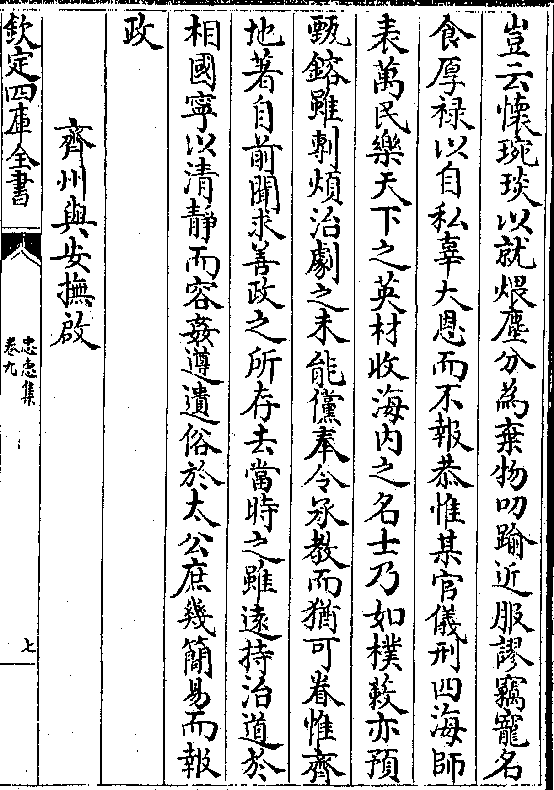 豈云懷琬琰以就煨塵分為棄物叨踰近服謬竊寵名
食厚禄以自私辜大恩而不報恭惟某官儀刑四海師
表萬民樂天下之英材收海内之名士乃如樸蔌亦預
甄鎔雖剸煩治劇之未能儻奉令承教而猶可眷惟齊
地著自前聞求善政之所存去當時之雖遠持治道於
相國寧以清靜而容姦遵遺俗於太公庶幾簡易而報
政
齊州與安撫啟
欽定四庫全書
忠惠集
卷九
七